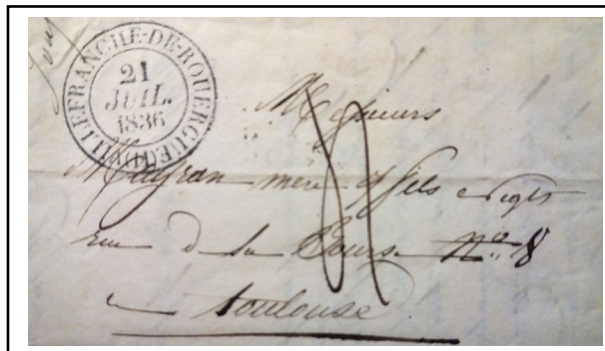 VILLEFRANCHE-DE-ROUERGUE (11)
21
JUIL.
1836
Messieurs
Mayran mère & fils negts
rue d la Bourse No 18
a toulouse